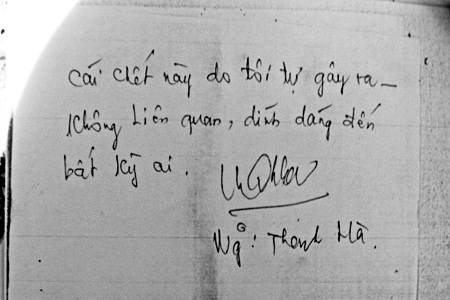 Cái chết này do tôi tự gây ra_
Không liên quan, dính dáng đến
bất kỳ ai.
Ng: Thanh Hà.